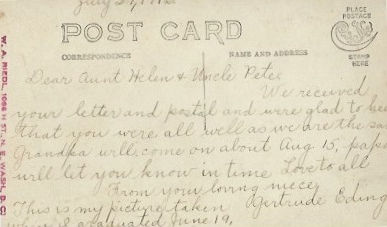 July
POST CARD
PLACE
POSTAGE
STAMP
HERE
CORRESPONDENCE
NAME AND ADDRESS
Dear Aunt Helen & Uncle Pete,
We received
your letter and postal and were glad to hea
that you were all well as we are the sa
Grandpa will come on about Aug 15, papa
will let you know in time Love to all
From your loving niece,
This is my picture taken Gertrude Eding
when I graduated June 19,
W. A. RIEDL, 1066 H ST. N. E. WASH. D. C.